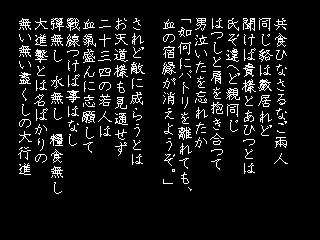 共食ひなさるなご両人
同じ貉は数居れど
聞けば貴様とあひつとは
氏ぞ違へど親同じ
はつしと肩を抱き合つて
男泣いたを忘れたか
「如何にパトリを離れても、
血の宿縁が消えようぞ。」
されど敵に成らうとは
お天道様も見通せず
二十三四の若人は
血氣盛んに志願して
戦線つけば事はなし
弾無し　水無し　糧食無し
大進撃とは名ばかりの
無い無い盡くしの大行進